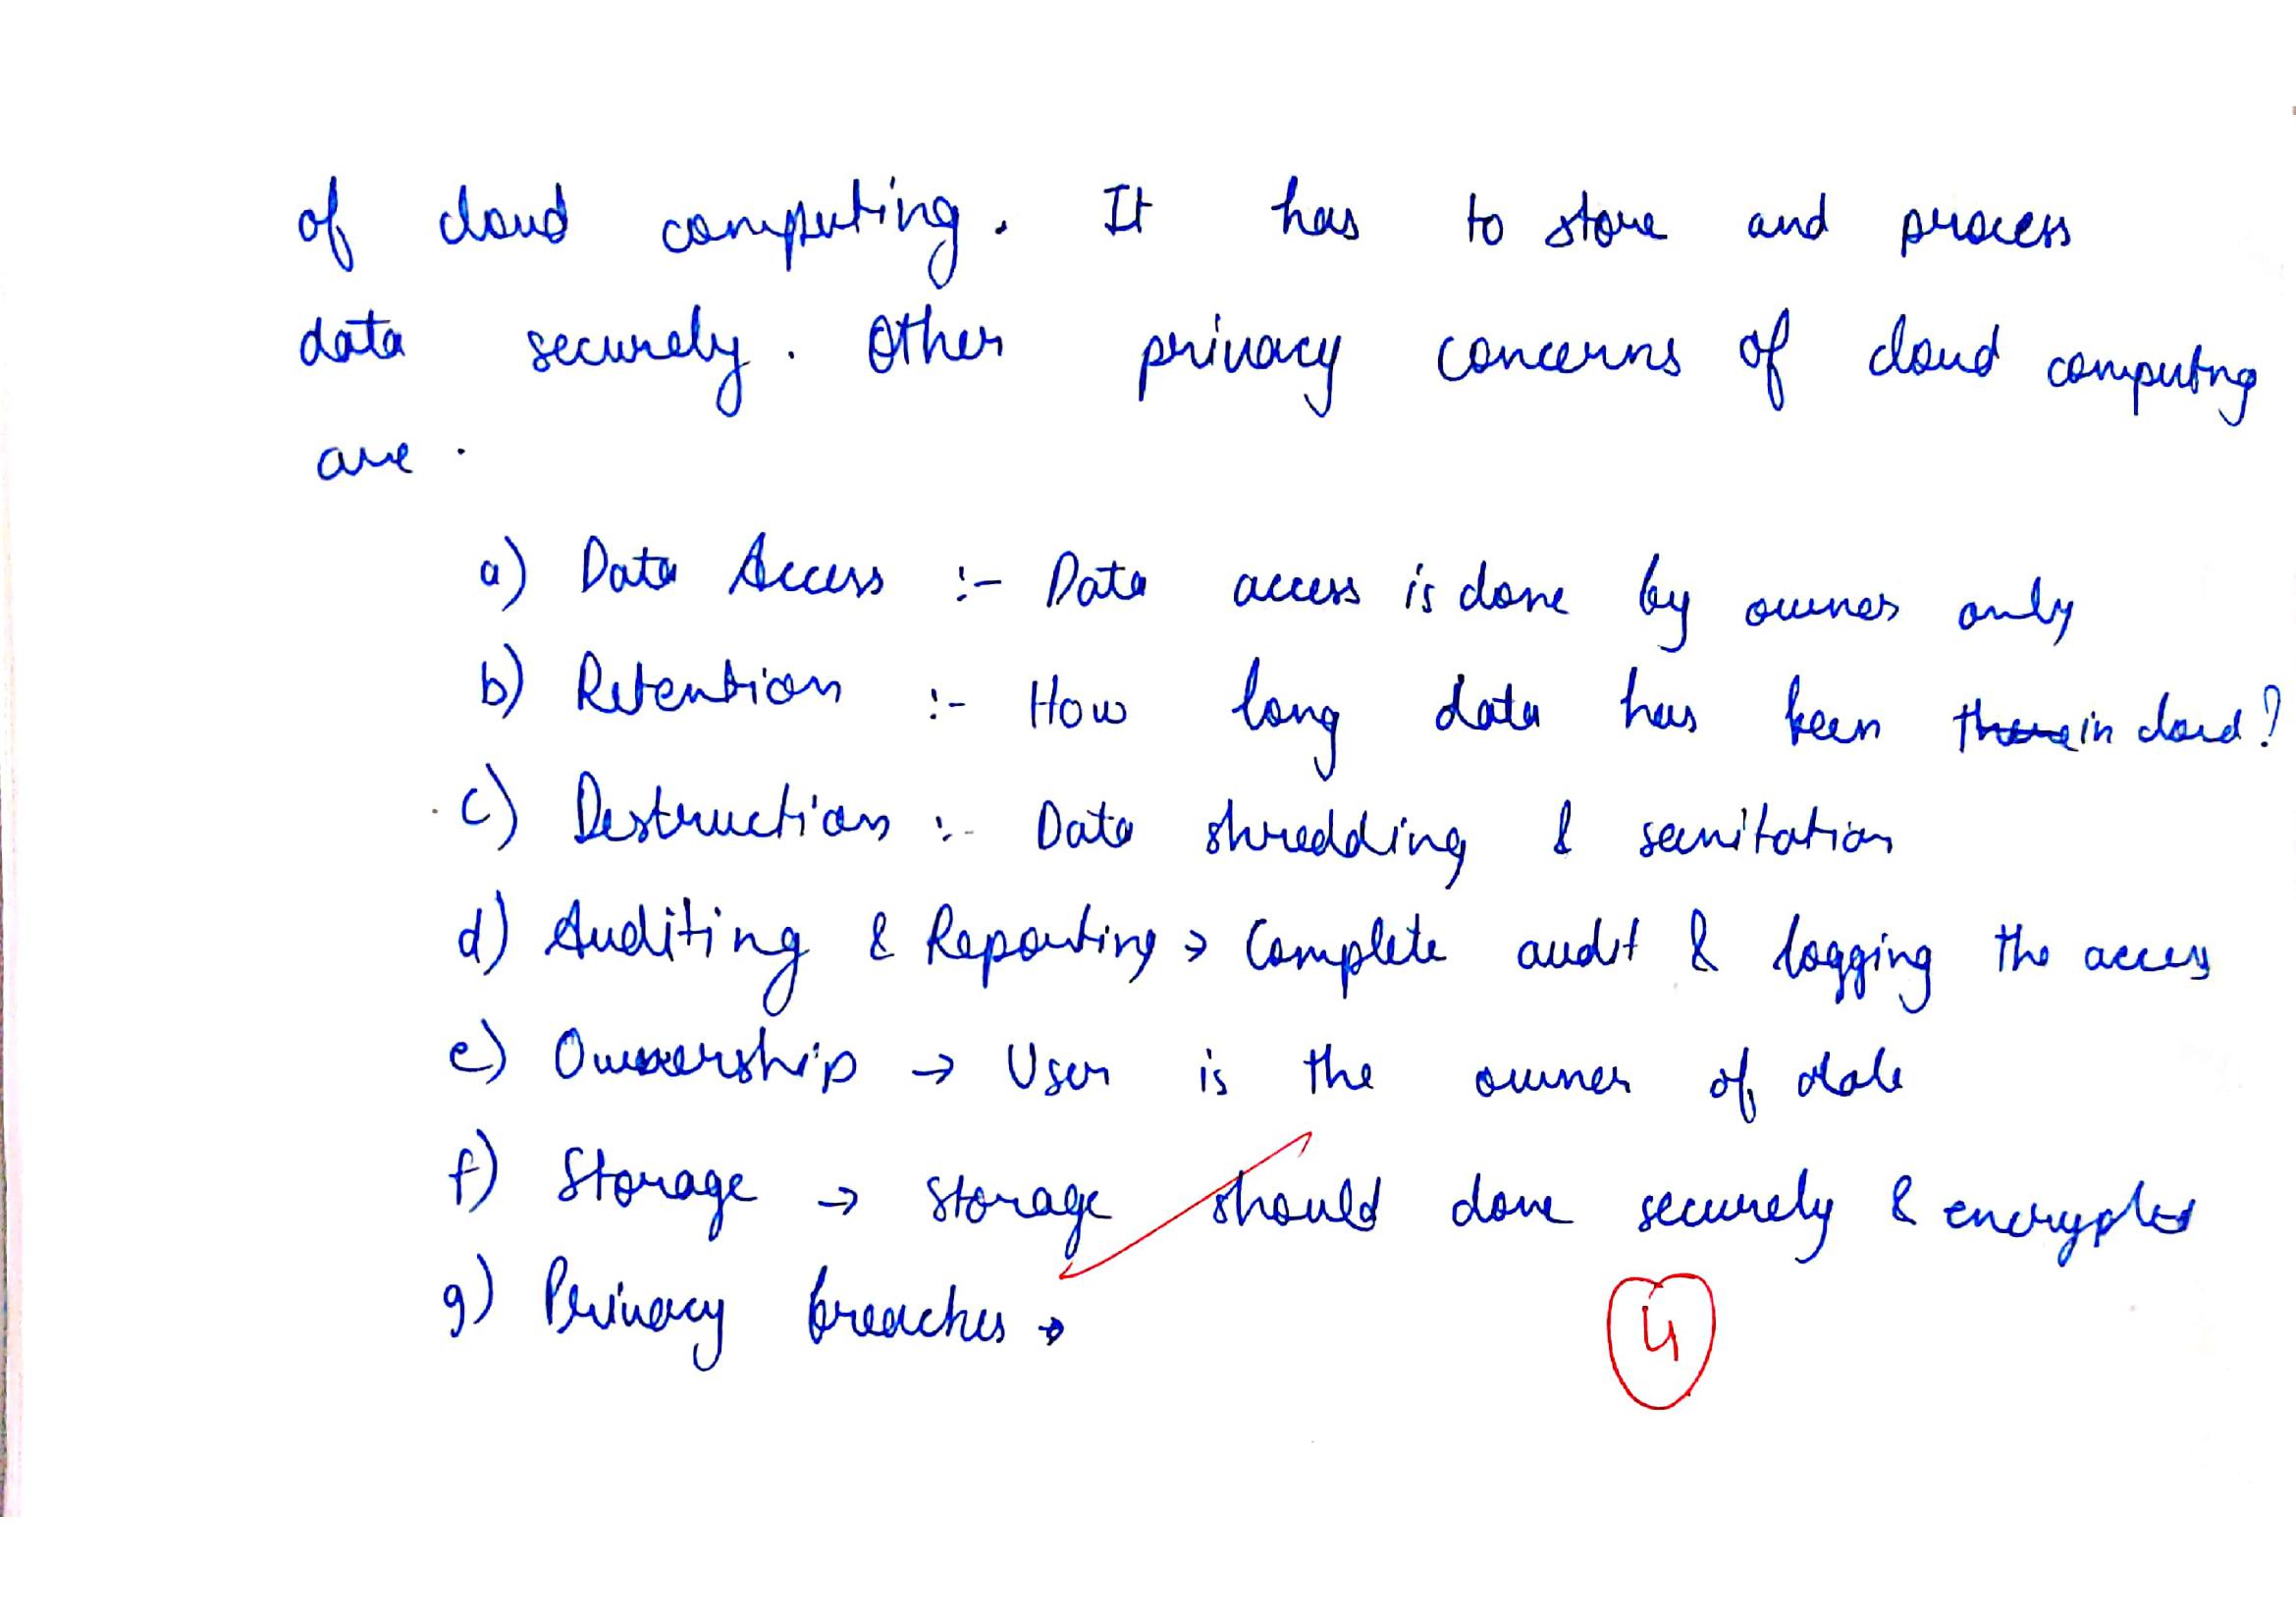 of cloud computing. It has to store and process
data securely. Other privacy concerns of cloud computing
are.
a) Data Access :- Data access is done by owner only
b) Retention :- How long data has been in cloud?
c) Destruction :- Data shredding & sanitation
d) Auditing & Reporting → Complete audit & logging the access
e) Ownership → User is the owner of data
f) Storage → Storage should done securely & encrypted
g) Privacy breaches →
4